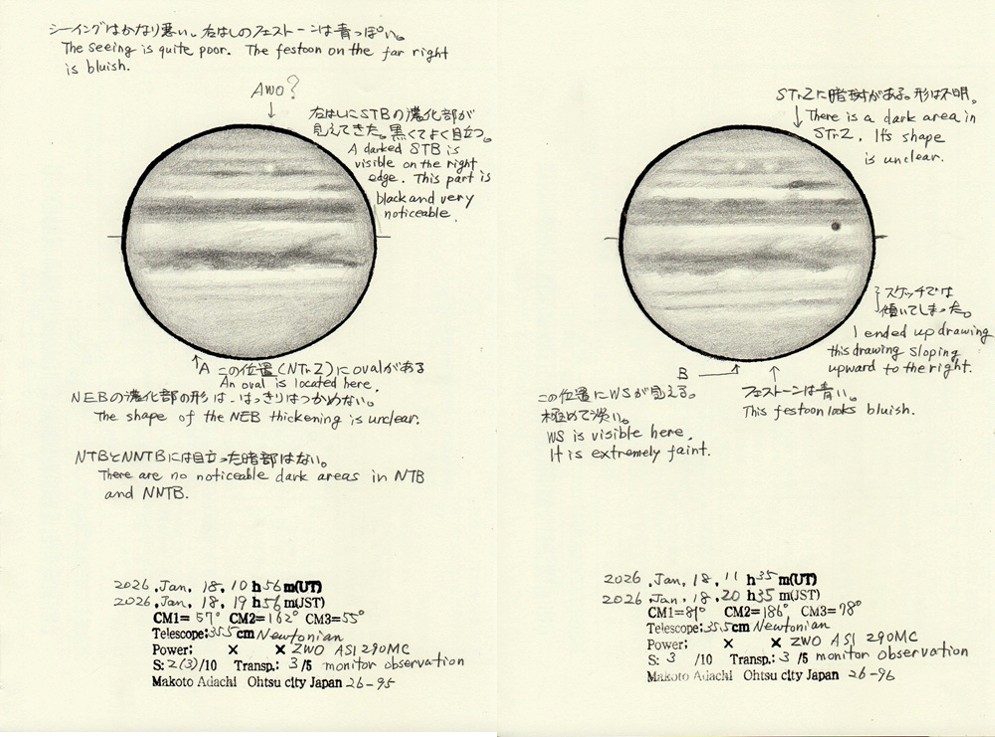 シーイングはかなり悪い。右はしのフェストーンは青っぽい。
The seeing is quite poor. The festoon on the far right
is bluish.
AWO?
右はしにSTBの濃化部が
見えてきた。黒くてよく目立つ。
A darked STB is
visible on the right
edge. This part is
black and very
noticeable.
A この位置(NTrZ)にovalがある
An oval is located here.
NEBの濃化部の形は、はっきりはつかめない。
The shape of the NEB thickening is unclear.
NTBとNNTBには目立った暗部はない。
There are no noticeable dark areas in NTB
and NNTB.
2026.Jan. 18, 10 h 56 m(UT)
2026.Jan. 18, 19 h 56 m(JST)
CM1= 57° CM2= 162° CM3= 55°
Telescope: 35.5 cm Newtonian
Power: × × ZWO ASI 290MC
S: 2(3)/10 Transp.: 3 /5 monitor observation
Makoto Adachi Ohtsu city Japan 26-95
STrZに暗斑がある。形は不明。
There is a dark area in
STrZ. Its shape
is unclear.
スケッチでは
傾いてしまった。
I ended up drawing
this drawing sloping
upward to the right.
B
この位置にWSが見える。
極めて淡い。
WS is visible here.
It is extremely faint.
フェストーンは青い。
This festoon looks bluish.
2026.Jan. 18, 11 h 35 m(UT)
2026.Jan. 18, 20 h 35 m(JST)
CM1= 81° CM2= 186° CM3= 78°
Telescope: 35.5 cm Newtonian
Power: × × ZWO ASI 290MC
S: 3 /10 Transp.: 3 /5 monitor observation
Makoto Adachi Ohtsu city Japan 26-96